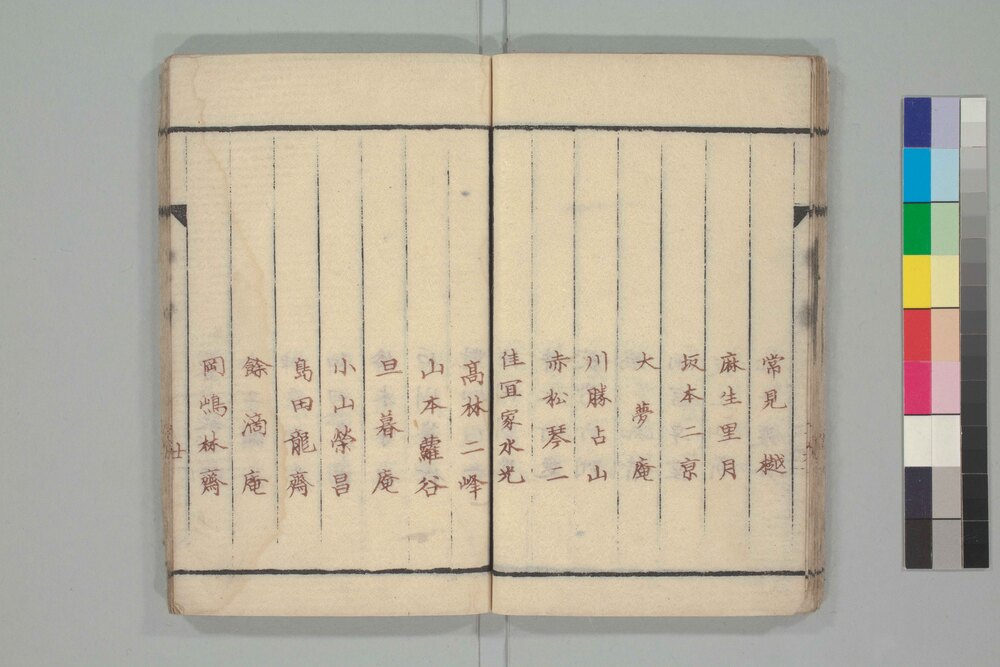 常見樾
麻生里月
坂本二京
大夢庵
川勝占山
赤松琴二
佳冝家水光
髙林二峰
山本蘿谷
旦暮庵
小山榮昌
島田龍齋
餘滴庵
岡嶋林齋
廿